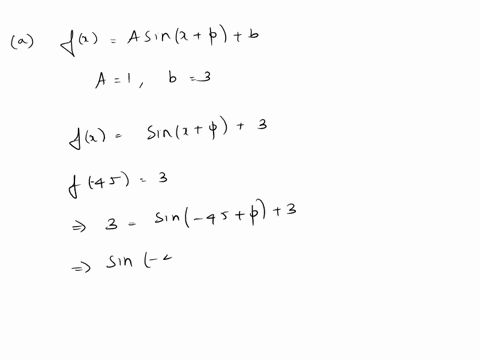 (a) f(x) = A sin(x + p) + b
A = 1, b = 3
f(x) = sin(x + p) + 3
f(-45) = 3
⇒ 3 = sin(-45 + p) + 3
⇒ sin (-4